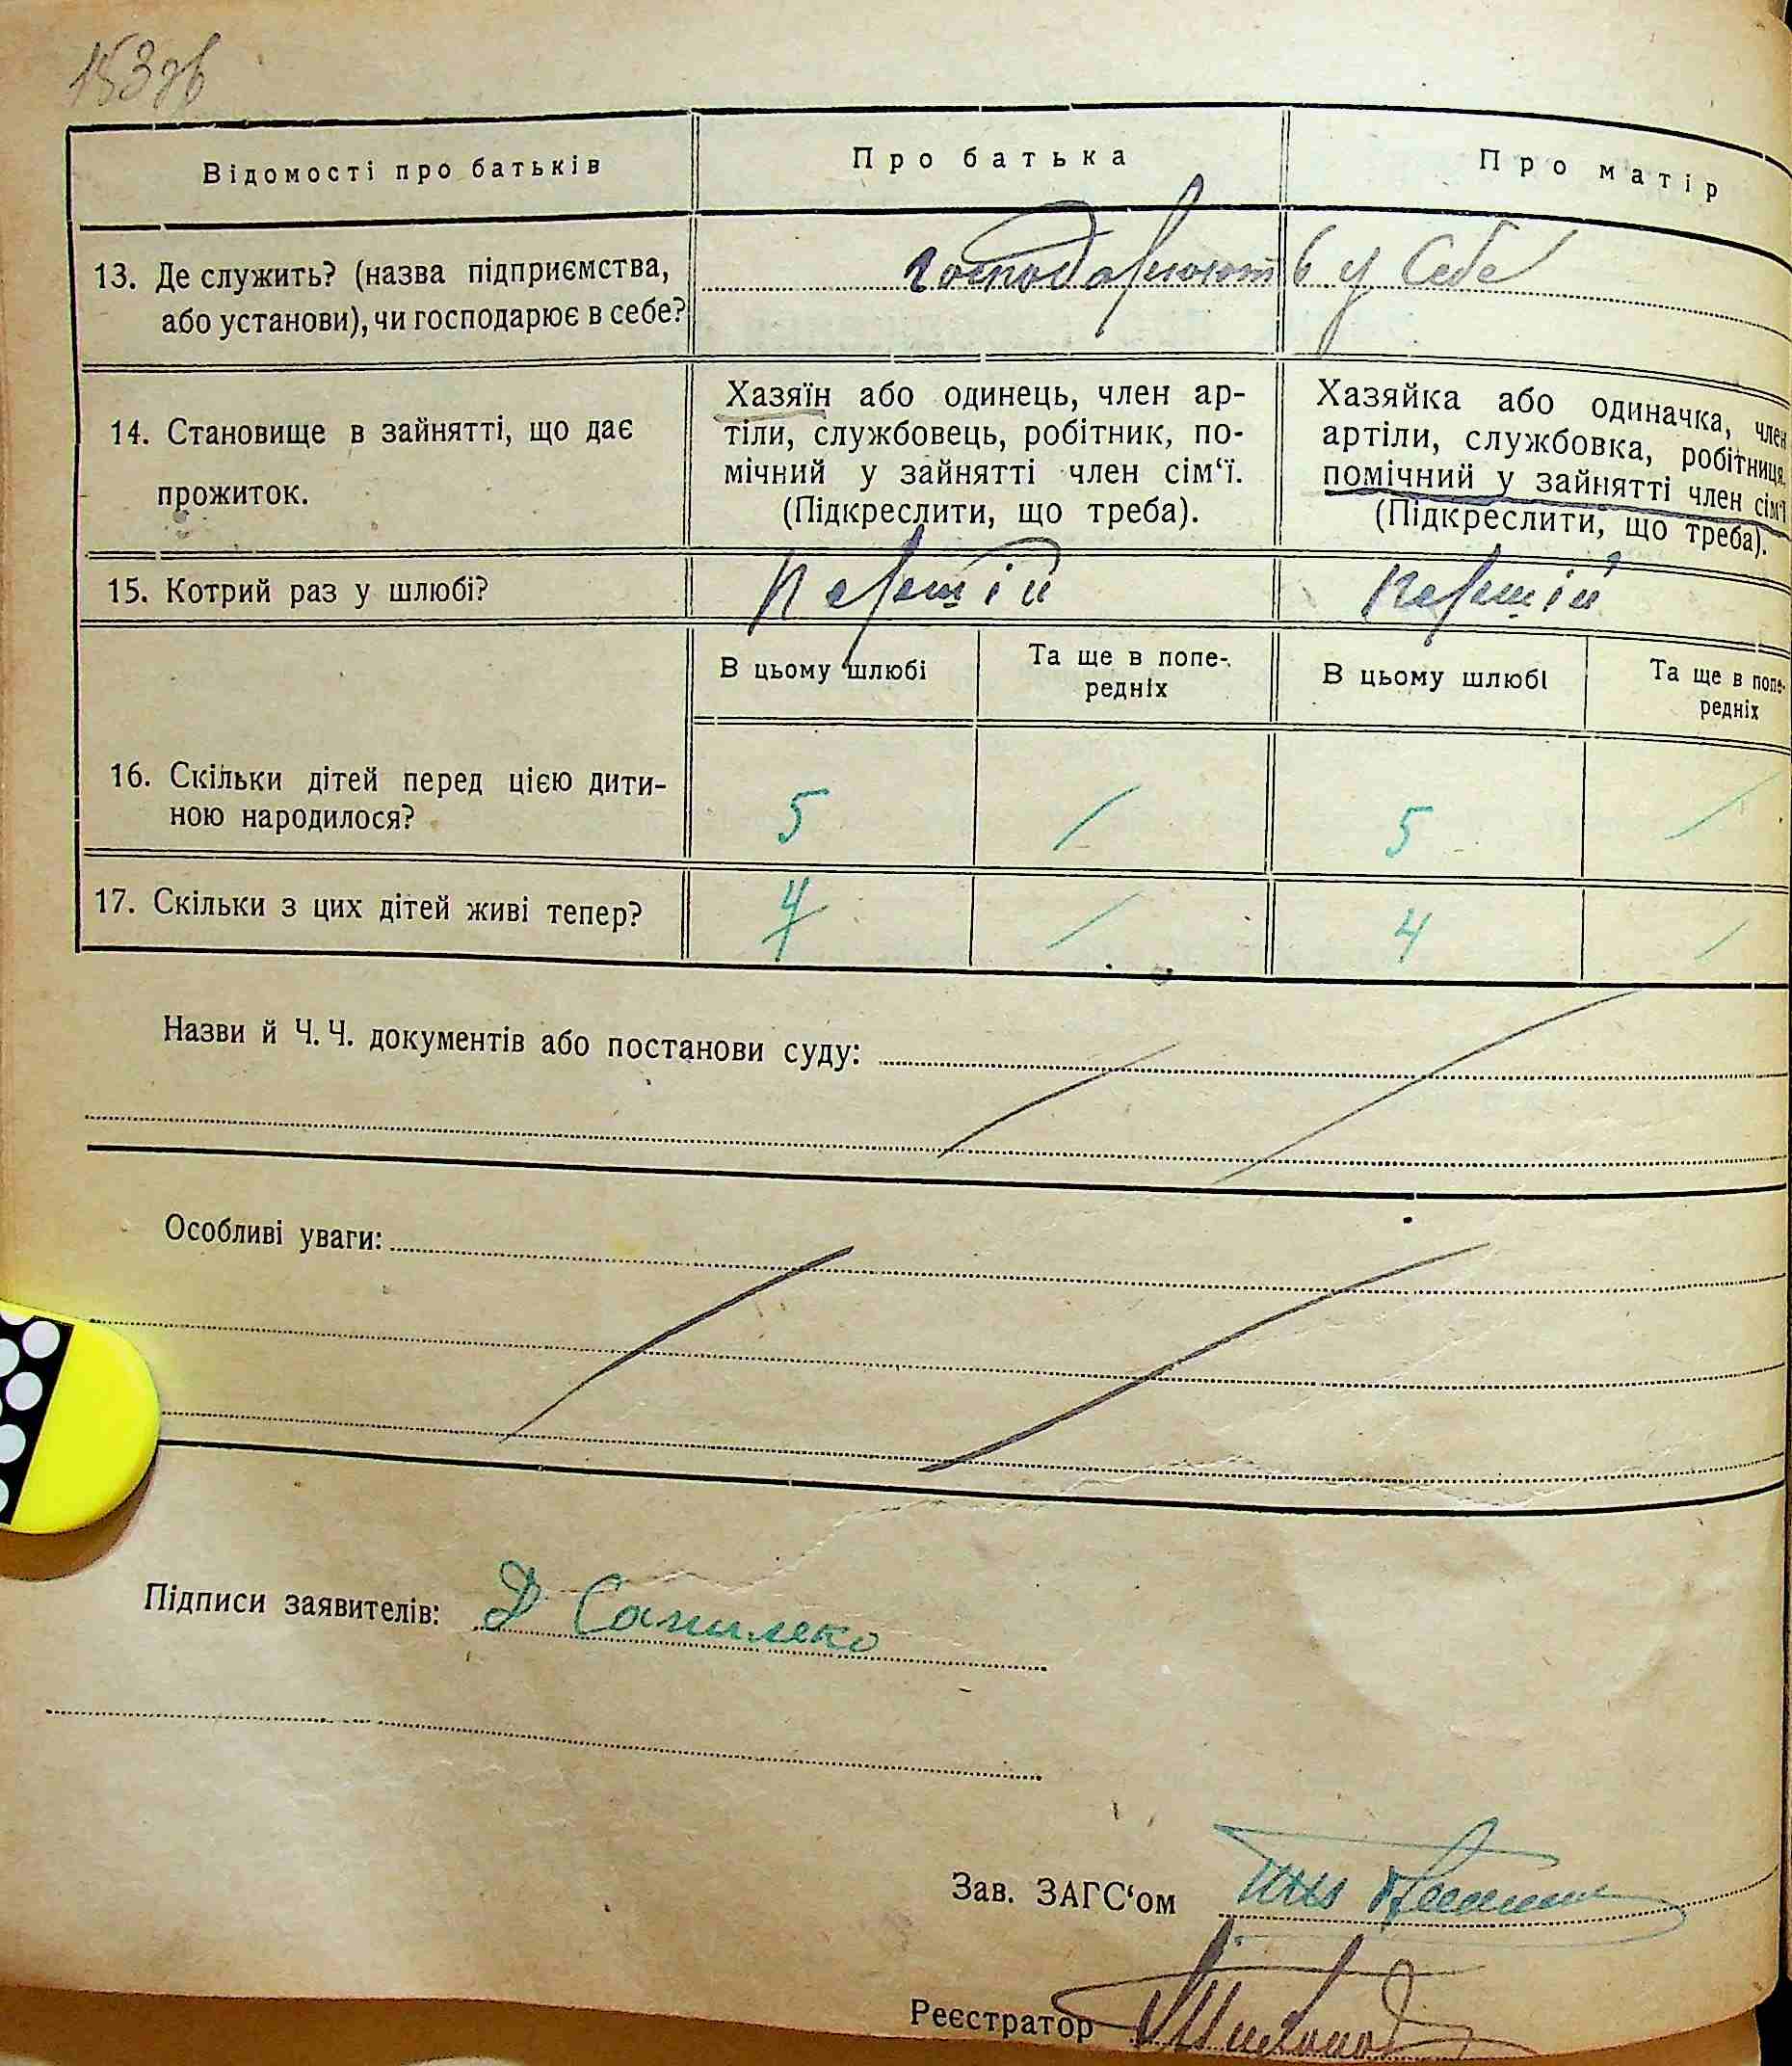 153зв
Відомості про батьків
Про батька
Про матір
13. Де служить? (назва підприємства,
або установи), чи господарює в себе?
господарюють у себе
14. Становище в зайнятті, що дає
прожиток.
Хазяїн або одинець, член ар-
тіли, службовець, робітник, по-
мічний у зайнятті член сім‘ї.
(Підкреслити, що треба).
Хазяйка або одиначка, член
артіли, службовка, робітниця,
помічний у зайнятті член сім‘ї
(Підкреслити, що треба).
15. Котрий раз у шлюбі?
перший
перший
В цьому шлюбі
Та ще в попе-
редніх
В цьому шлюбі
Та ще в попе-
редніх
16. Скільки дітей перед цією дити-
ною народилося?
5
/
5
/
17. Скільки з цих дітей живі тепер?
4
/
4
/
Назви й Ч. Ч. документів або постанови суду:
Особливі уваги:
Підписи заявителів: Д
Зав. ЗАГС‘ом
Реєстратор